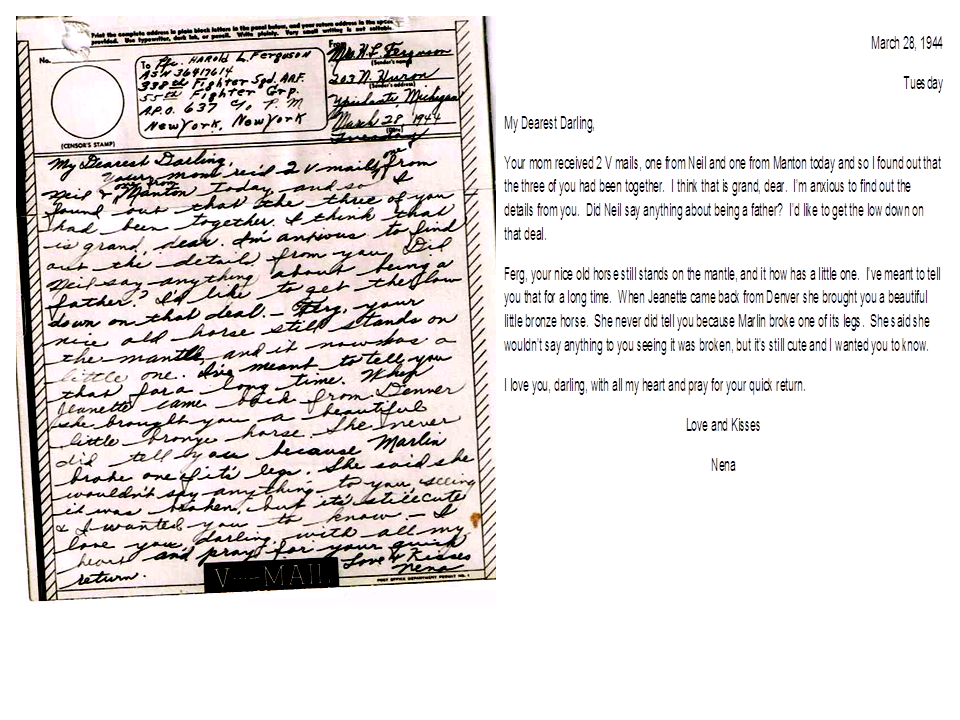 Print the complete address in plain block letters in the panel below, and your return address in the space
provided. Use typewriter, dark ink, or pencil. Write plainly. Very small writing is not suitable.
No.
(CENSOR'S STAMP)
To Pfc. HAROLD L. FERGUSON
ASN 36417614
338th Fighter Sqd. AAF.
55th Fighter Grp.
A.P.O. 637 c/o P.M
New York, New York
From
Mrs. H. L. Ferguson
(Sender's name)
203 N. Huron
(Sender's address)
Ypsilanti, Michigan
March 28, 1944
(Date)
Tuesday
My Dearest Darling,
Your mom rec'd 2 V mails, one from
Neil & one from Manton today and so I
found out that the three of you
had been together. I think that
is grand, dear. I'm anxious to find
out the details from you. Did
Neil say anything about being a
father? I'd like to get the low
down on that deal. — Ferg, your
nice old horse still stands on
the mantle, and it now has a
little one. I've meant to tell you
that for a long time. When
Jeanette came back from Denver
she brought you a beautiful
little bronze horse. She never
did tell you because Marlin
broke one of it's legs. She said she
wouldn't say anything to you, seeing
it was broken, but it's still cute
& I wanted you to know. — I
love you, darling, with all my
heart and pray for your quick
return. Love & Kisses
Nena
V···—MAIL
POST OFFICE DEPARTMENT PERMIT NO. 1
March 28, 1944
Tuesday
My Dearest Darling,
Your mom received 2 V mails, one from Neil and one from Manton today and so I found out that
the three of you had been together. I think that is grand, dear. I'm anxious to find out the
details from you. Did Neil say anything about being a father? I'd like to get the low down on
that deal.
Ferg, your nice old horse still stands on the mantle, and it how has a little one. I've meant to tell
you that for a long time. When Jeanette came back from Denver she brought you a beautiful
little bronze horse. She never did tell you because Marlin broke one of its legs. She said she
wouldn't say anything to you seeing it was broken, but it's still cute and I wanted you to know.
I love you, darling, with all my heart and pray for your quick return.
Love and Kisses
Nena